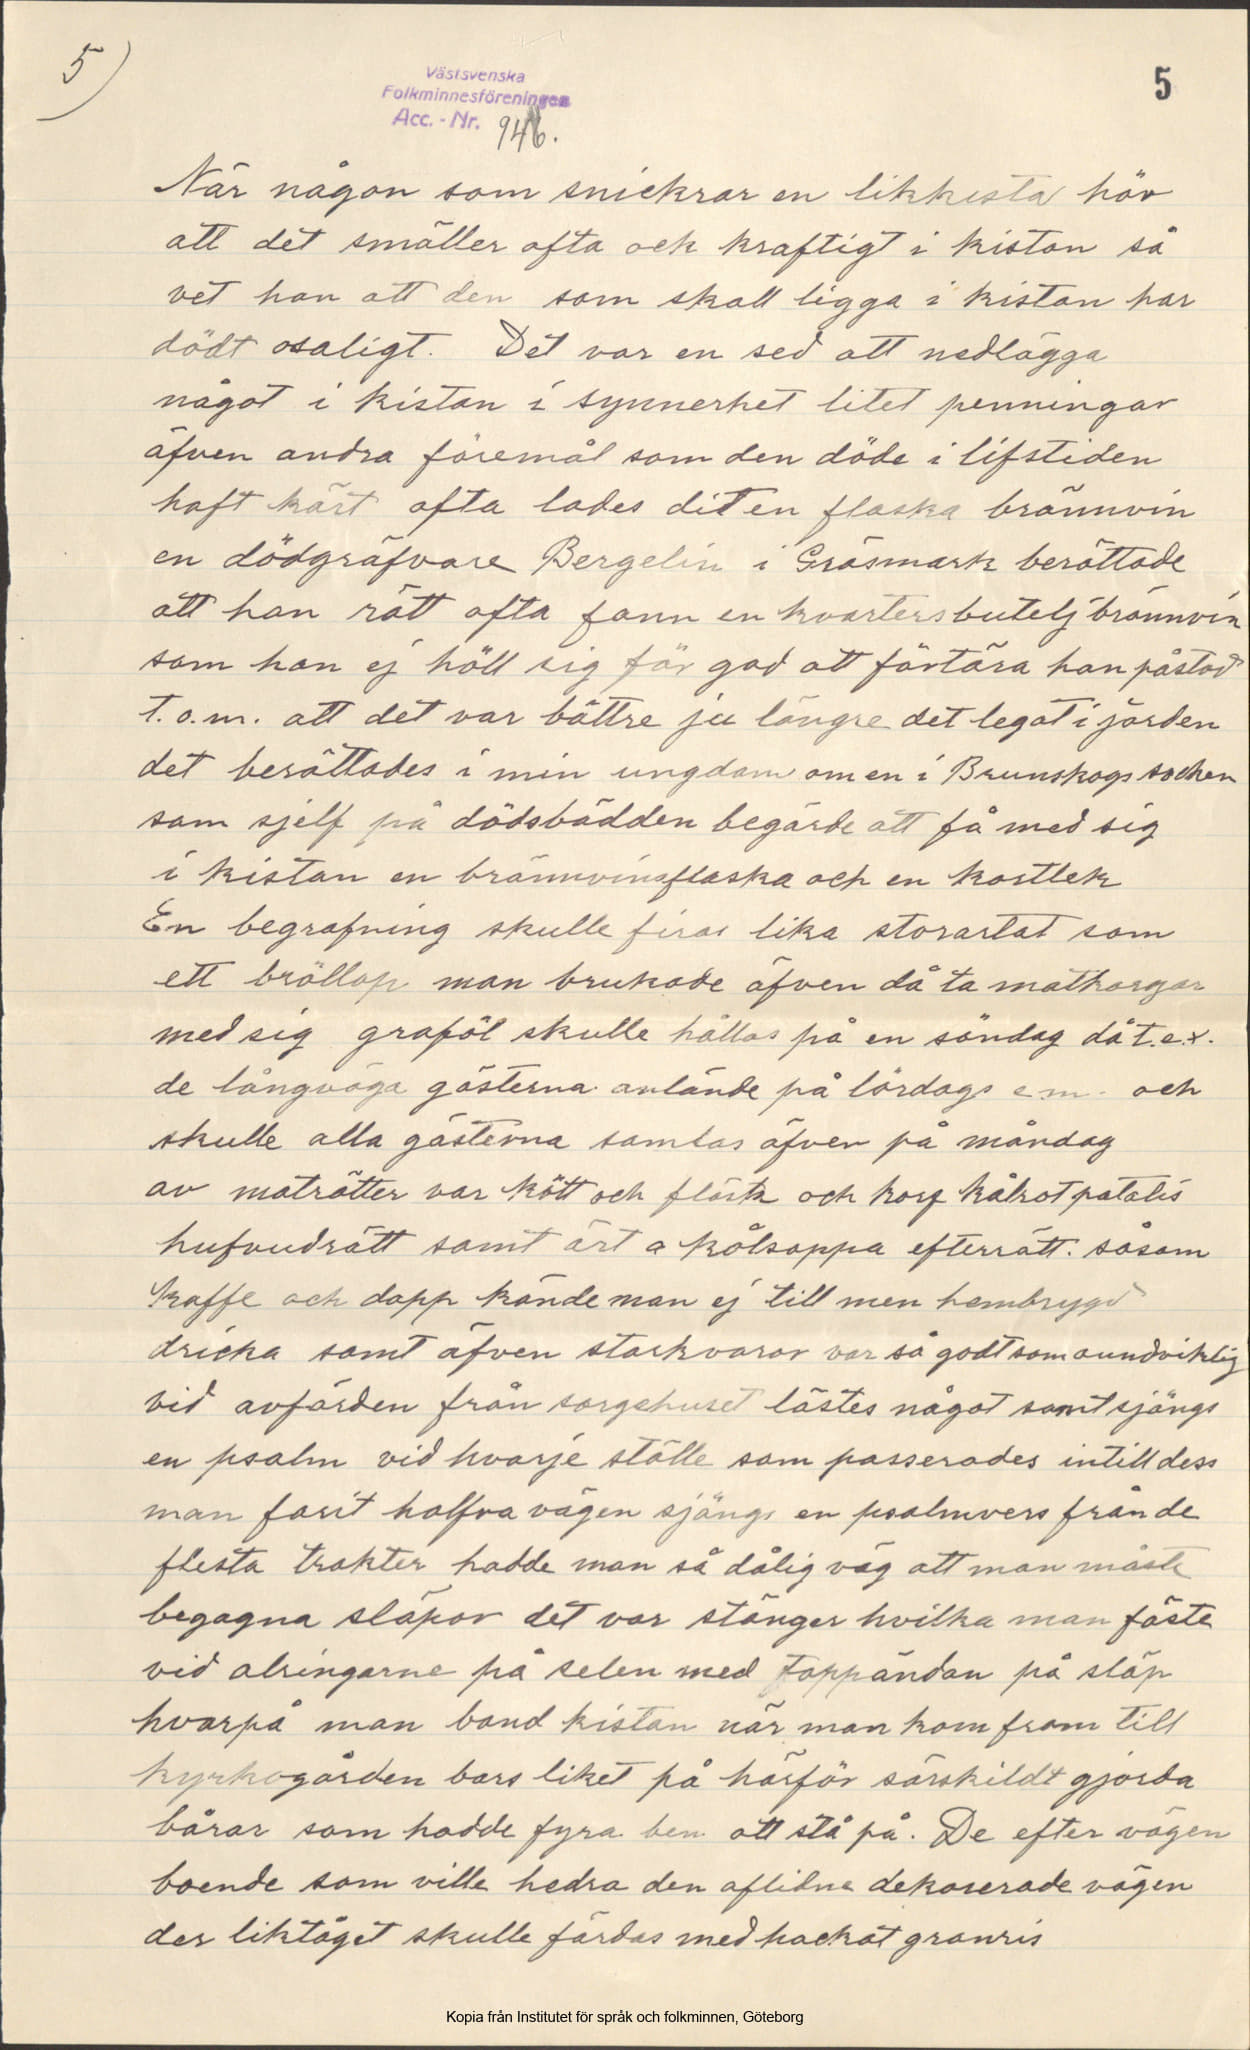 5)
Västsvenska
Folkminnesföreningen
Acc. - Nr. 946.
5
När någon som snickrar en likkista hör
att det smäller ofta och kraftigt i kistan så
vet han att den som skall ligga i kistan har
dödt osaligt. Det var en sed att nedlägga
något i kistan i synnerhet litet penningar
äfven andra föremål som den döde i lifstiden
haft kärt ofta lades dit en flaska brännvin
en dödgräfvare Bergelin i Gräsmark berättade
att han rätt ofta fann en kvartersbutelj brännvin
som han ej höll sig för god att förtära han påstod
t.o.m. att det var bättre ju längre det legat i jorden
det berättades i min ungdom om en i Brunskogs socken
som sjelf på dödsbädden begärde att få med sig
i kistan en brännvinsflaska och en kortlek
En begrafning skulle firas lika storartat som
ett bröllop man brukade äfven då ta matkorgar
med sig graföl skulle hållas på en söndag då t.e.x.
de långväga gästerna anlände på lördags e.m. och
skulle alla gästerna samlas äfven på måndag
av maträtter var kött och fläsk och korf kålrot patatis
hufvudrätt samt ärt a kålsoppa efterrätt. såsom
kaffe och dopp kände man ej till men hembrygd
dricka samt äfven starkvaror var så godt som oundviklig
vid avfärden från sorgehuset lästes något samt sjöngs
en psalm vid hvarje ställe som passerades intill dess
man farit halfva vägen sjöngs en psalmvers från de
flesta trakter hadde man så dålig väg att man måste
begagna släpor det var stänger hvilka man fäste
vid alringarne på selen med toppändan på släp
hvarpå man band kistan när man kom fram till
kyrkogården bars liket på härför särskildt gjorda
bårar som hadde fyra ben att stå på. De efter vägen
boende som ville hedra den aflidne dekorerade vägen
der liktåget skulle färdas med hackat granris
Kopia från Institutet för språk och folkminnen, Göteborg